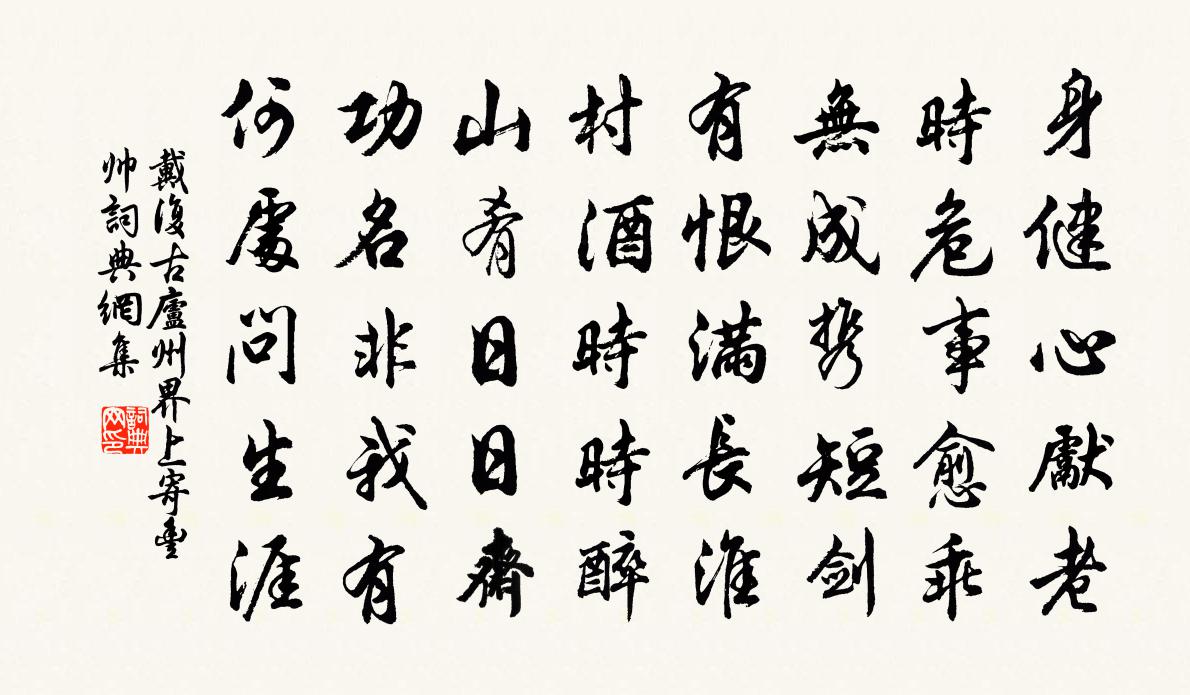 身健心獻老
時危事愈乖
無成携短劍
有恨滿長淮
村酒時時醉
山肴日日齋
功名非我有
何處問生涯
戴復古廬州界上寄豐
帥詞典網集
詞典网印